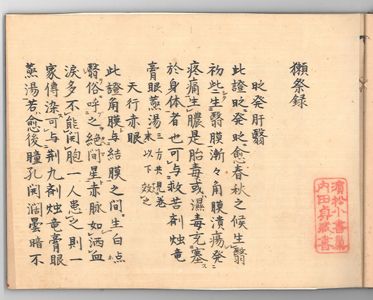 獺祭録
眇発肝翳
此證眇発眇愈春秋之候生翳
初些生翳膜漸々角膜潰瘍発
疼痛生膿是胎毒或濕毒充塞
於身体者也可与救苦剤燭竜
膏眼蒸湯三方共現巻末以下效之
天行赤眼
此證角膜与結膜之間生白点
翳俗呼之絶間星赤脉如洒血
涙多不能開胞一人患之則一
家傳染可与荊九剤燭竜膏眼
蒸湯若愈後瞳孔濶曇暗不
濱松小書
内田蔵書